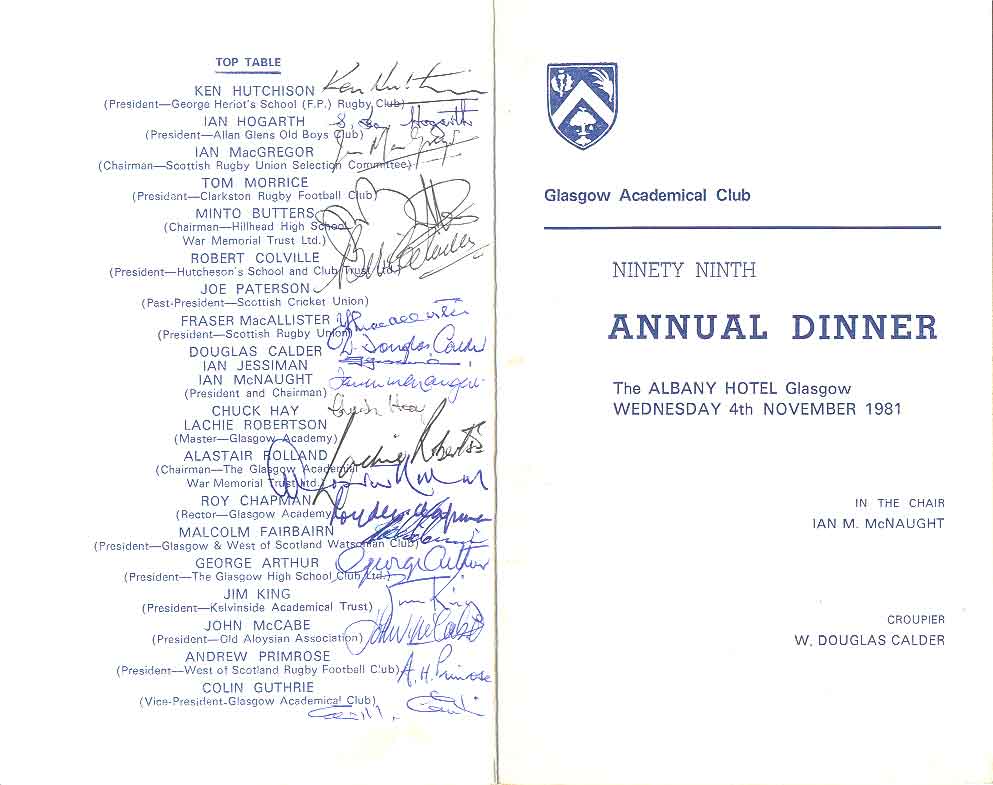 TOP TABLE
KEN HUTCHISON
(President—George Heriot's School (F.P.) Rugby Club)
IAN HOGARTH
(President—Allan Glens Old Boys Club)
IAN MacGREGOR
(Chairman—Scottish Rugby Union Selection Committee)
TOM MORRICE
(President—Clarkston Rugby Football Club)
MINTO BUTTERS
(Chairman—Hillhead High School
War Memorial Trust Ltd.)
ROBERT COLVILLE
(President—Hutcheson's School and Club Trust Ltd.)
JOE PATERSON
(Past-President—Scottish Cricket Union)
FRASER MacALLISTER
(President—Scottish Rugby Union)
DOUGLAS CALDER
IAN JESSIMAN
IAN McNAUGHT
(President and Chairman)
CHUCK HAY
LACHIE ROBERTSON
(Master—Glasgow Academy)
ALASTAIR HOLLAND
(Chairman—The Glasgow Academical
War Memorial Trust Ltd.)
ROY CHAPMAN
(Rector—Glasgow Academy)
MALCOLM FAIRBAIRN
(President—Glasgow & West of Scotland Watsonian Club)
GEORGE ARTHUR
(President—The Glasgow High School Club Ltd.)
JIM KING
(President—Kelvinside Academical Trust)
JOHN McCABE
(President—Old Aloysian Association)
ANDREW PRIMROSE
(President—West of Scotland Rugby Football Club)
COLIN GUTHRIE
(Vice-President-Glasgow Academical Club)
Ken Hutchison
Hogarth
Douglas Calder
Chuck Hay
Lachie Robertson
George Arthur
Jim King
John McCabe
A. H. Primrose
Glasgow Academical Club
NINETY NINTH
ANNUAL DINNER
The ALBANY HOTEL Glasgow
WEDNESDAY 4th NOVEMBER 1981
IN THE CHAIR
IAN M. McNAUGHT
CROUPIER
W. DOUGLAS CALDER